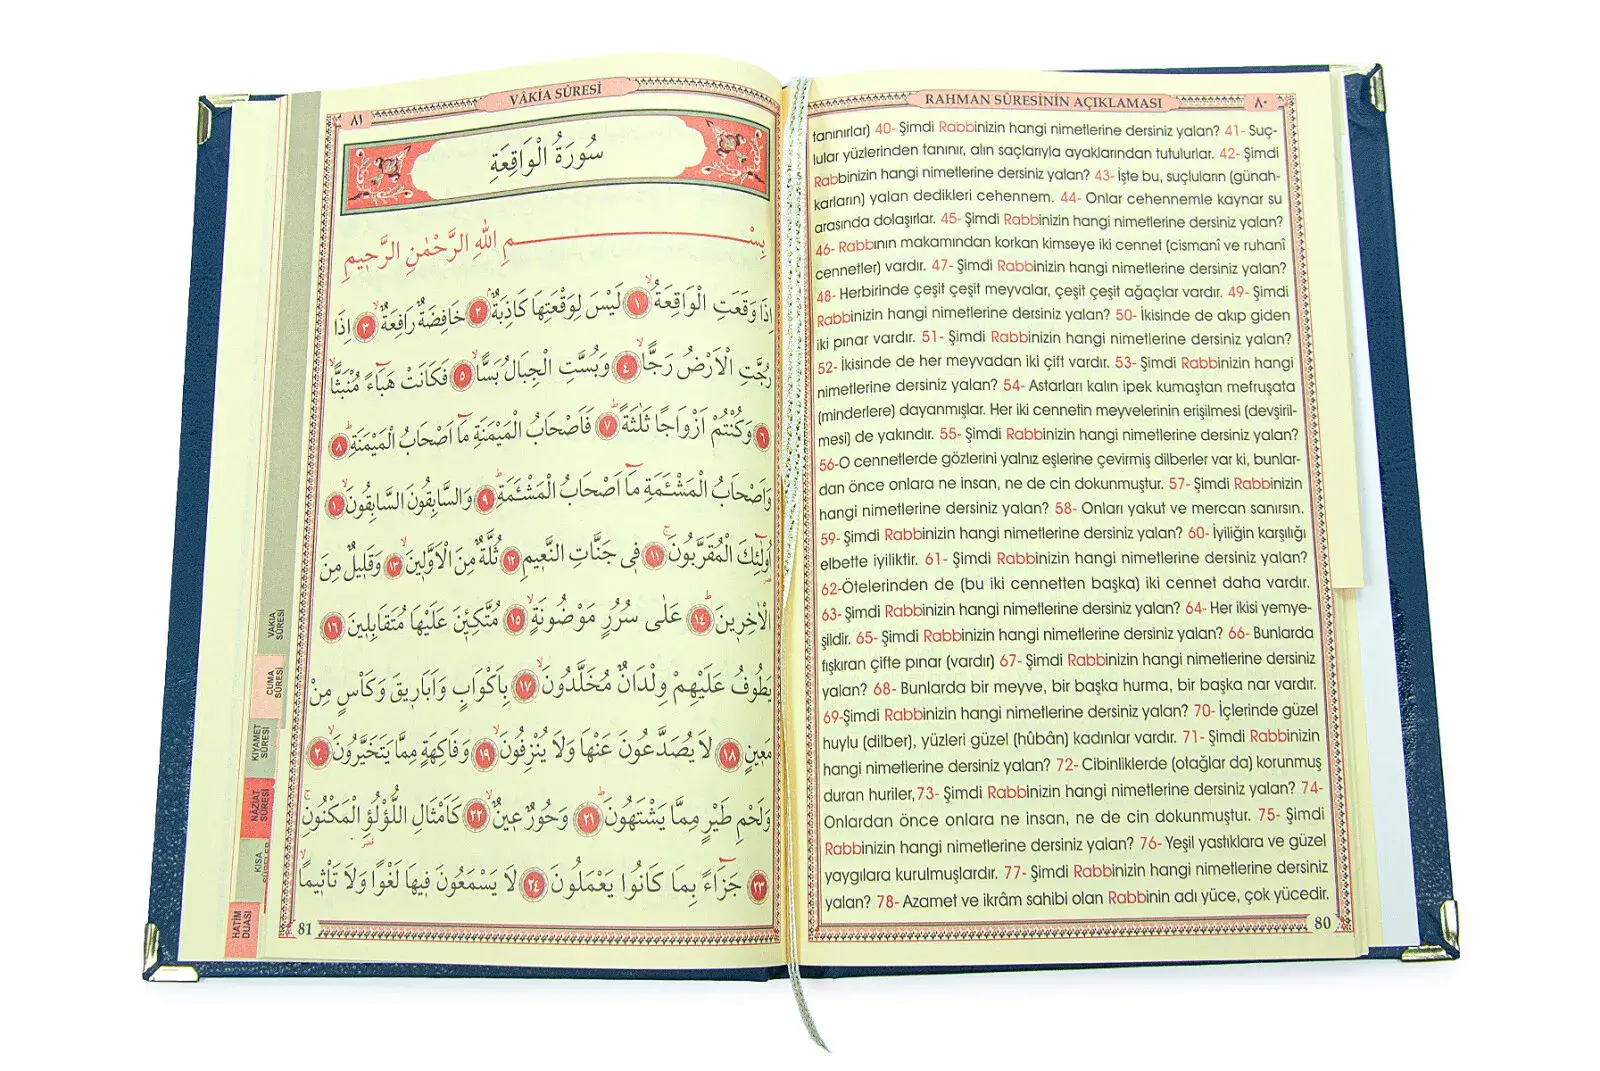 RAHMAN SÛRESİNİN AÇIKLAMASI
٨٠
tanınırlar) 40- Şimdi Rabbinizin hangi nimetlerine dersiniz yalan? 41- Suç-
lular yüzlerinden tanınır, alın saçlarıyla ayaklarından tutulurlar. 42- Şimdi
Rabbinizin hangi nimetlerine dersiniz yalan? 43- İşte bu, suçluların (günah-
karların) yalan dedikleri cehennem. 44- Onlar cehennemle kaynar su
arasında dolaşırlar. 45- Şimdi Rabbinizin hangi nimetlerine dersiniz yalan?
46- Rabbının makamından korkan kimseye iki cennet (cismanî ve ruhanî
cennetler) vardır. 47- Şimdi Rabbinizin hangi nimetlerine dersiniz yalan?
48- Herbirinde çeşit çeşit meyvalar, çeşit çeşit ağaçlar vardır. 49- Şimdi
Rabbinizin hangi nimetlerine dersiniz yalan? 50- İkisinde de akıp giden
iki pınar vardır. 51- Şimdi Rabbinizin hangi nimetlerine dersiniz yalan?
52- İkisinde de her meyvadan iki çift vardır. 53- Şimdi Rabbinizin hangi
nimetlerine dersiniz yalan? 54- Astarları kalın ipek kumaştan mefruşata
(minderlere) dayanmışlar. Her iki cennetin meyvelerinin erişilmesi (devşiril-
mesi) de yakındır. 55- Şimdi Rabbinizin hangi nimetlerine dersiniz yalan?
56-O cennetlerde gözlerini yalnız eşlerine çevirmiş dilberler var ki, bunlar-
dan önce onlara ne insan, ne de cin dokunmuştur. 57- Şimdi Rabbinizin
hangi nimetlerine dersiniz yalan? 58- Onları yakut ve mercan sanırsın.
59- Şimdi Rabbinizin hangi nimetlerine dersiniz yalan? 60- İyiliğin karşılığı
elbette iyiliktir. 61- Şimdi Rabbinizin hangi nimetlerine dersiniz yalan?
62-Ötelerinden de (bu iki cennetten başka) iki cennet daha vardır.
63- Şimdi Rabbinizin hangi nimetlerine dersiniz yalan? 64- Her ikisi yemye-
şildir. 65- Şimdi Rabbinizin hangi nimetlerine dersiniz yalan? 66- Bunlarda
fışkıran çifte pınar (vardır) 67- Şimdi Rabbinizin hangi nimetlerine dersiniz
yalan? 68- Bunlarda bir meyve, bir başka hurma, bir başka nar vardır.
69-Şimdi Rabbinizin hangi nimetlerine dersiniz yalan? 70- İçlerinde güzel
huylu (dilber), yüzleri güzel (hûbân) kadınlar vardır. 71- Şimdi Rabbinizin
hangi nimetlerine dersiniz yalan? 72- Cibinliklerde (otağlar da) korunmuş
duran huriler,73- Şimdi Rabbinizin hangi nimetlerine dersiniz yalan? 74-
Onlardan önce onlara ne insan, ne de cin dokunmuştur. 75- Şimdi
Rabbinizin hangi nimetlerine dersiniz yalan? 76- Yeşil yastıklara ve güzel
yaygılara kurulmuşlardır. 77- Şimdi Rabbinizin hangi nimetlerine dersiniz
yalan? 78- Azamet ve ikrâm sahibi olan Rabbinin adı yüce, çok yücedir.
80
VÂKİA SÛRESİ
٨١
سُورَةُ الْوَاقِعَةِ
بِسْمِ اللهِ الرَّحْمٰنِ الرَّحٖيمِ
اِذَا وَقَعَتِ الْوَاقِعَةُۙ ١ لَيْسَ لِوَقْعَتِهَا كَاذِبَةٌۢ ٢ خَافِضَةٌ رَافِعَةٌۙ ٣ اِذَا
رُجَّتِ الْاَرْضُ رَجًّاۙ ٤ وَبُسَّتِ الْجِبَالُ بَسًّاۙ ٥ فَكَانَتْ هَبَٓاءً مُنْبَثًّاۙ
٦ وَكُنْتُمْ اَزْوَاجًا ثَلٰثَةًؕ ٧ فَاَصْحَابُ الْمَيْمَنَةِ مَٓا اَصْحَابُ الْمَيْمَنَةِؕ ٨
وَاَصْحَابُ الْمَشْـَٔمَةِ مَٓا اَصْحَابُ الْمَشْـَٔمَةِؕ ٩ وَالسَّابِقُونَ السَّابِقُونَۙ ١٠
اُولٰٓئِكَ الْمُقَرَّبُونَۚ ١١ فٖي جَنَّاتِ النَّعٖيمِ ١٢ ثُلَّةٌ مِنَ الْاَوَّلٖينَۙ ١٣ وَقَلٖيلٌ مِنَ
الْاٰخِرٖينَؕ ١٤ عَلٰى سُرُرٍ مَوْضُونَةٍۙ ١٥ مُتَّكِـٖٔينَ عَلَيْهَا مُتَقَابِلٖينَ ١٦
يَطُوفُ عَلَيْهِمْ وِلْدَانٌ مُخَلَّدُونَۙ ١٧ بِاَكْوَابٍ وَاَبَارٖيقَ وَكَاْسٍ مِنْ
مَعٖينٍۙ ١٨ لَا يُصَدَّعُونَ عَنْهَا وَلَا يُنْزِفُونَۙ ١٩ وَفَاكِهَةٍ مِمَّا يَتَخَيَّرُونَۙ ٢٠
وَلَحْمِ طَيْرٍ مِمَّا يَشْتَهُونَؕ ٢١ وَحُورٌ عٖينٌۙ ٢٢ كَاَمْثَالِ اللُّؤْلُؤِ الْمَكْنُونِۚ
٢٣ جَزَٓاءً بِمَا كَانُوا يَعْمَلُونَ ٢٤ لَا يَسْمَعُونَ فٖيهَا لَغْوًا وَلَا تَاْثٖيمًاۙ
81
VAKIA
SÛRESİ
CUMA
SÛRESİ
KIYAMET
SÛRESİ
NÂZİAT
SÛRESİ
KISA
HATİM
DUASI